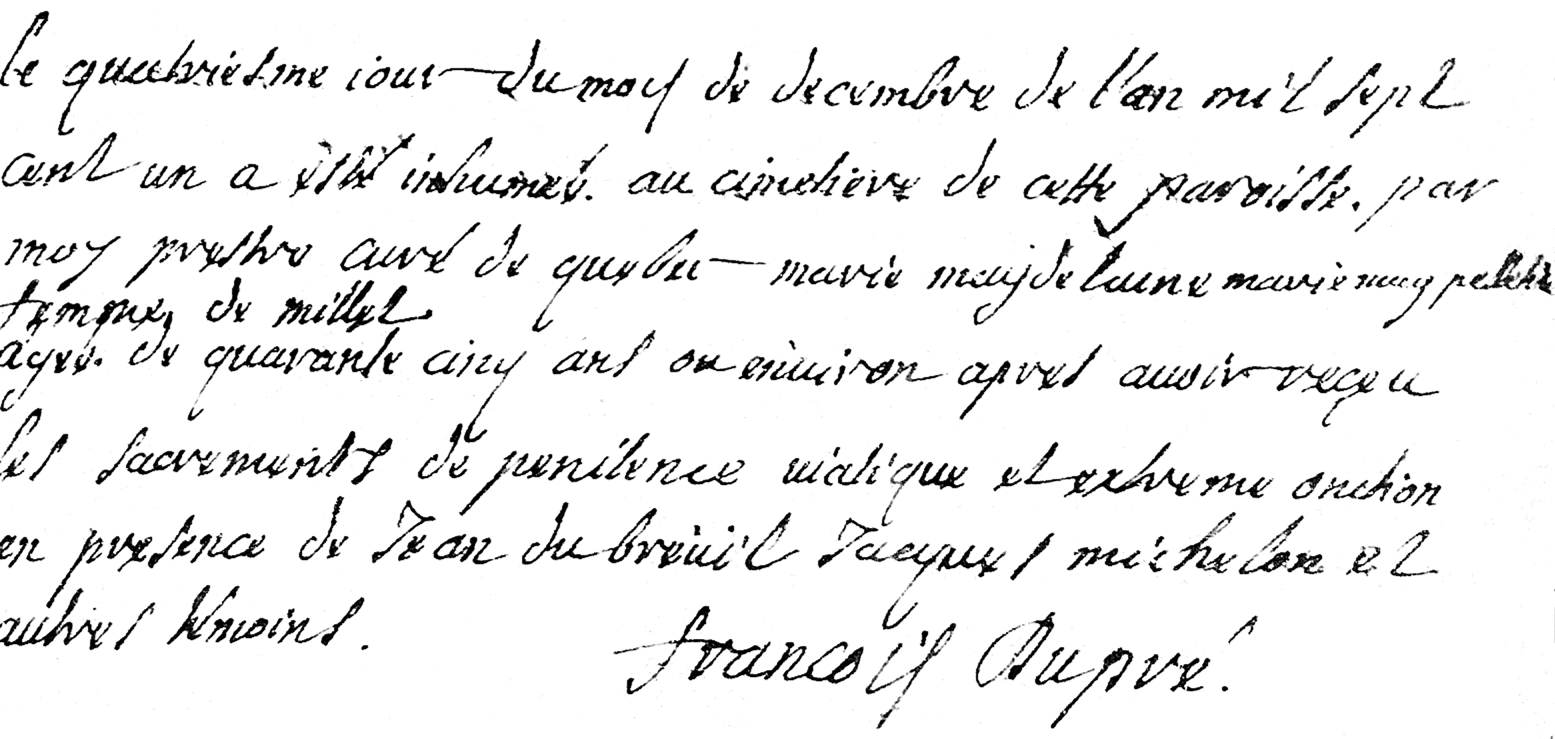 le quatriesme iour du moys de decembre de l'an mil sept
cent un a esté inhumeé. au cimetiere de cette paroisse. par
moy prestre curé de quebec marie magdelaine marie mag pelletie
femme de millet
ageé. de quarante cinq ans ou enuiron apres auoir reçeu
les sacrements de penitence uiatique et extreme onction
en presence de Jean du breüil Jacques michelon et
autres témoins.
francois Dupré.